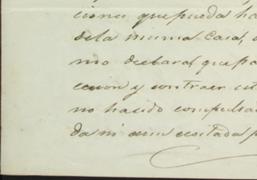 ciones, que pueda ha
de la misma Casa, 
mo declaran que pa
cion y contraer
no ha sido compulsa
da ni amenazada p